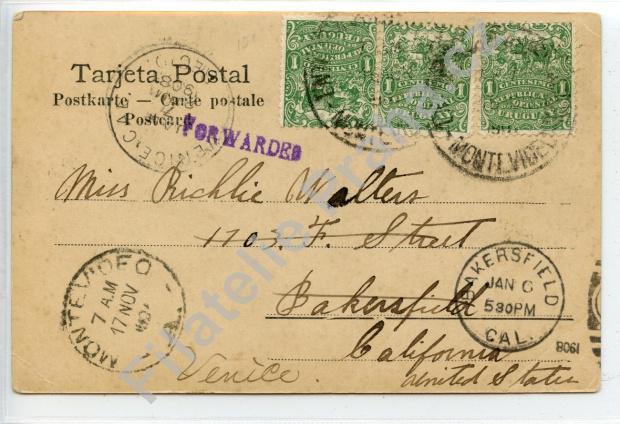 Tarjeta Postal
Postkarte — Carte postale
Postcard
FORWARDED
1 CENTESIMO REPUBLICA ORIENTAL URUGUAY 1
1 CENTESIMO REPUBLICA ORIENTAL URUGUAY 1
1 CENTESIMO REPUBLICA ORIENTAL URUGUAY 1
MONTEVIDEO
VENICE, CAL.
Miss Richlie Walters
1103 F. Street
Bakersfield
California
United States
Venice.
MONTEVIDEO
7 AM
17 NOV
BAKERSFIELD
JAN 6
530PM
CAL.
1908
Filatelie Franc.cz